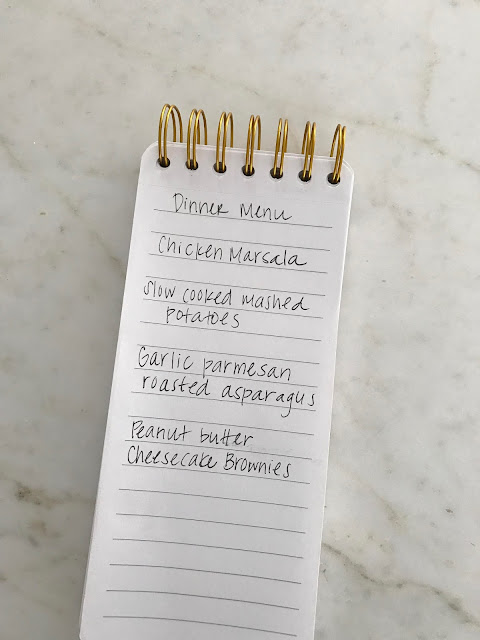 Dinner Menu
Chicken Marsala
Slow cooked mashed
potatoes
Garlic parmesan
roasted asparagus
Peanut butter
Cheesecake Brownies